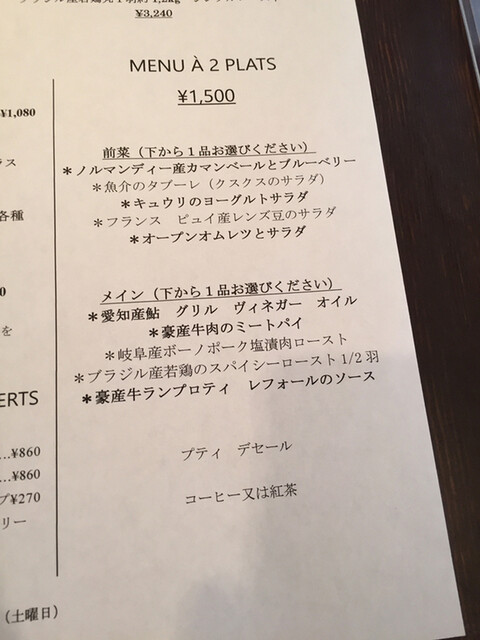 ¥3,240
MENU À 2 PLATS
¥1,500
前菜（下から１品お選びください）
＊ノルマンディー産カマンベールとブルーベリー
＊魚介のタブーレ（クスクスのサラダ）
＊キュウリのヨーグルトサラダ
＊フランス　ピュイ産レンズ豆のサラダ
＊オープンオムレツとサラダ
メイン（下から１品お選びください）
＊愛知産鮎　グリル　ヴィネガー　オイル
＊豪産牛肉のミートパイ
＊岐阜産ボーノポーク塩漬肉ロースト
＊ブラジル産若鶏のスパイシーロースト1/2羽
＊豪産牛ランプロティ　レフォールのソース
プティ　デセール
コーヒー又は紅茶
¥1,080
ラス
各種
0
を
ERTS
…¥860
…¥860
プ¥270
リー
（土曜日）